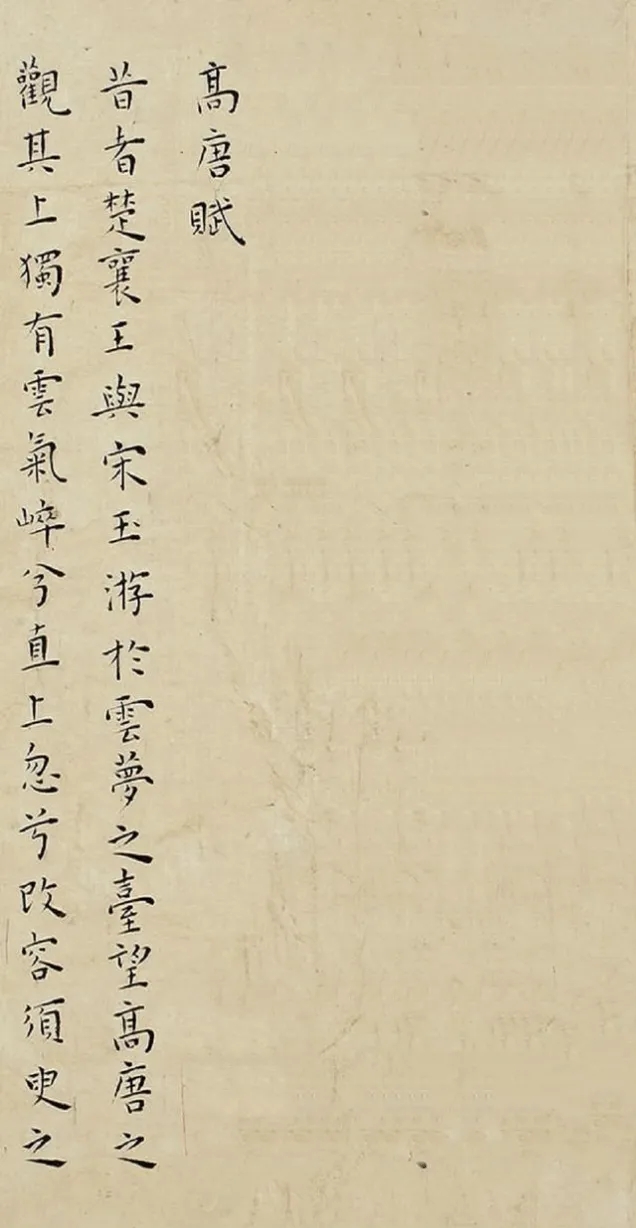 高唐賦
昔者楚襄王與宋玉游於雲夢之臺望高唐之
觀其上獨有雲氣崪兮直上忽兮改容須臾之